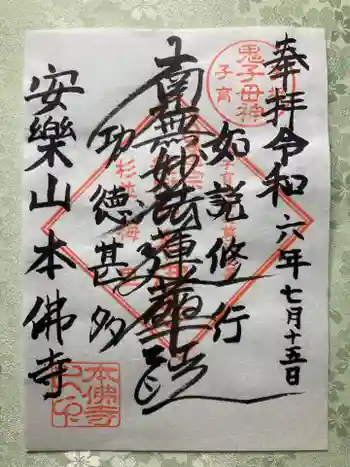 奉拝令和六年七月十五日
鬼子母神
子育
如説修行
南無妙法蓮華経
功徳甚多
安樂山本佛寺
本佛寺